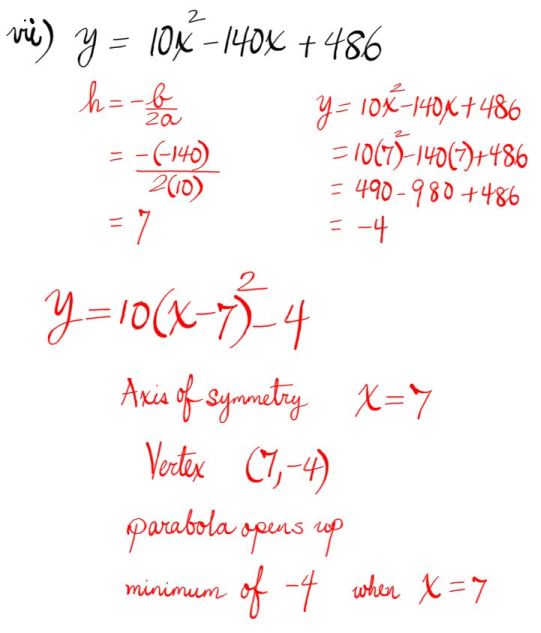 vii) y = 10x² - 140x + 486
h = -b/2a
= -(-140)/2(10)
= 7
y = 10x² - 140x + 486
= 10(7)² - 140(7) + 486
= 490 - 980 + 486
= -4
y = 10(x - 7)² - 4
Axis of symmetry x = 7
Vertex (7, -4)
parabola opens up
minimum of -4 when x = 7